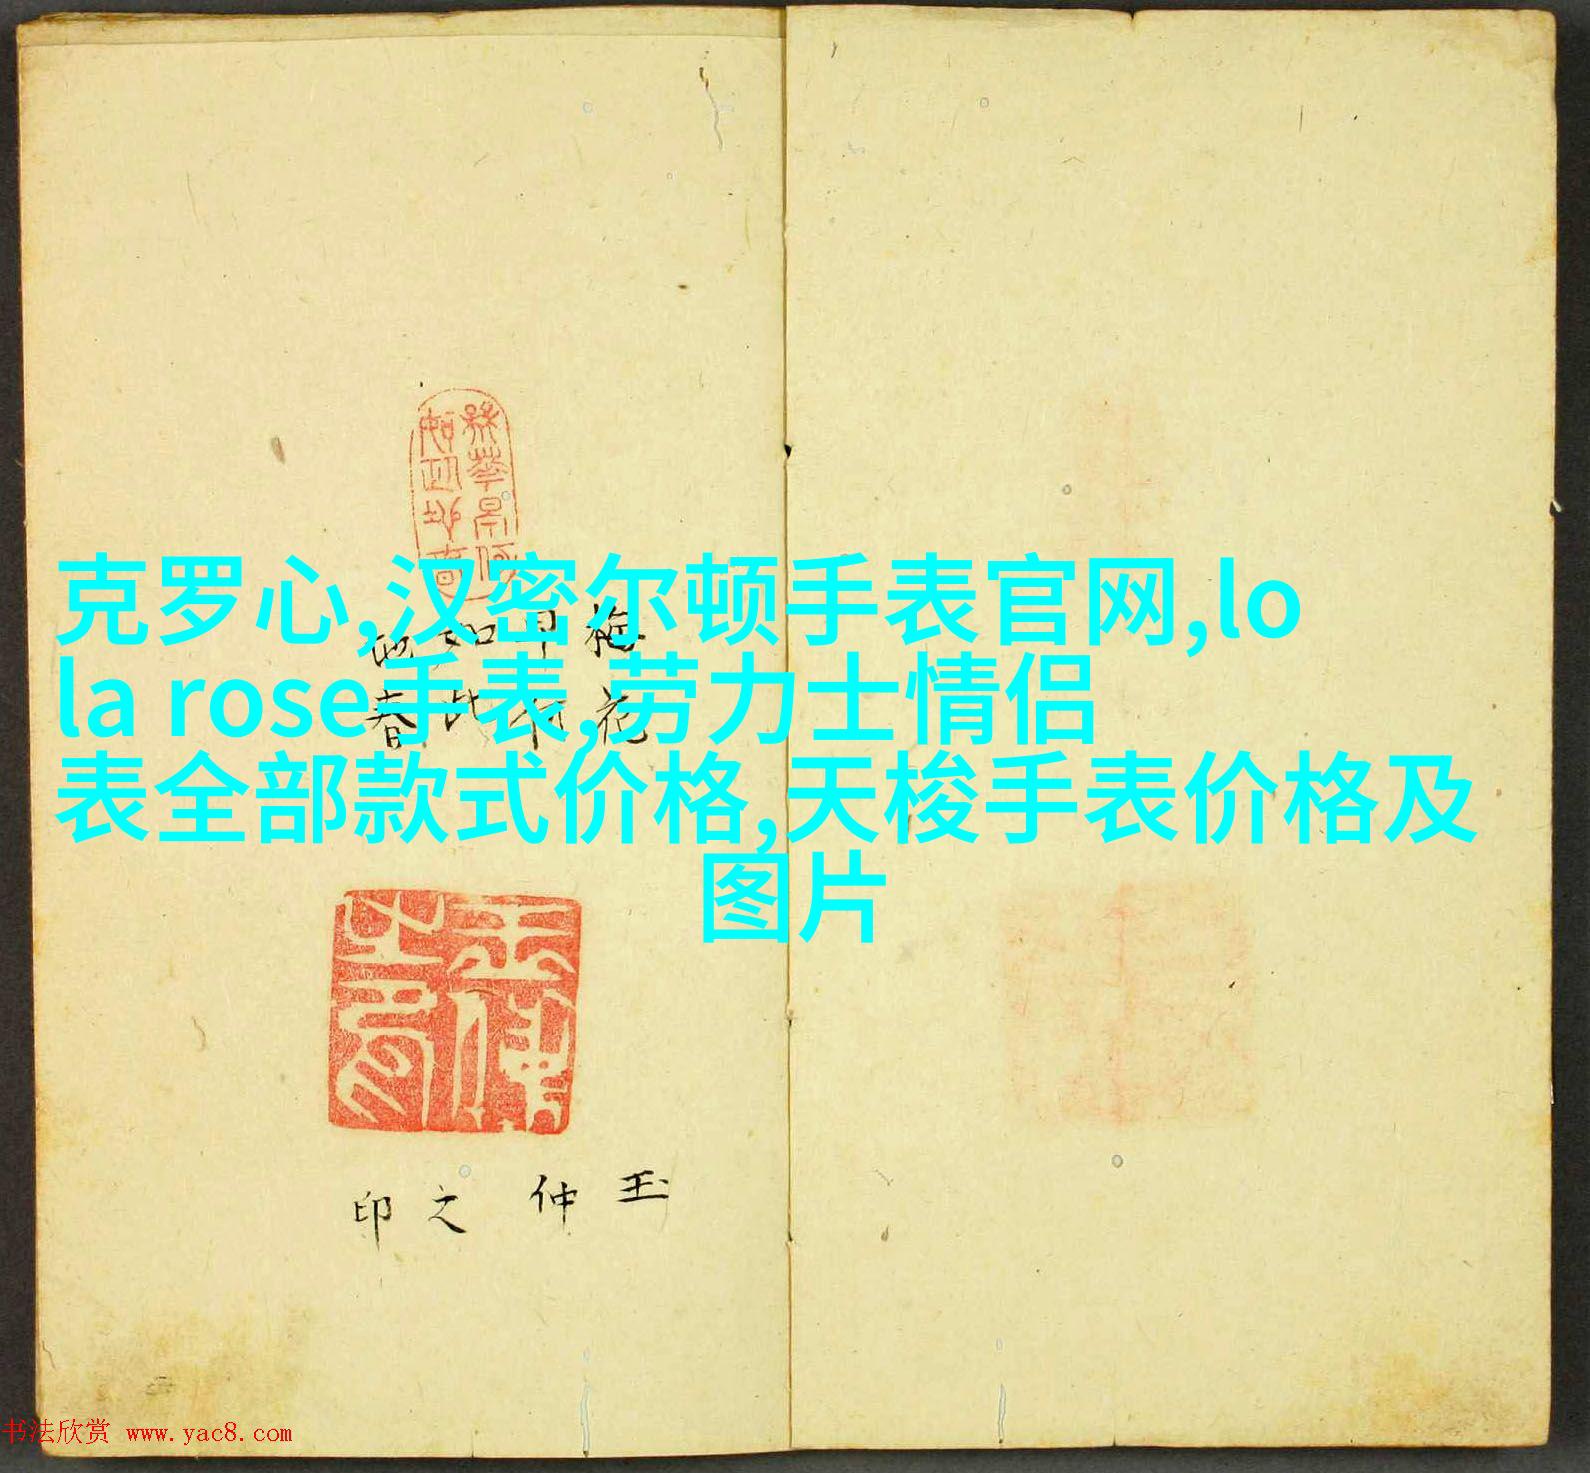 克罗心,汉密尔顿手表官网,lo
la rose手表,劳力士情侣
表全部款式价格,天梭手表价格及
图片
梅花
如此
玉仲之印
书法欣赏 www.yac8.com